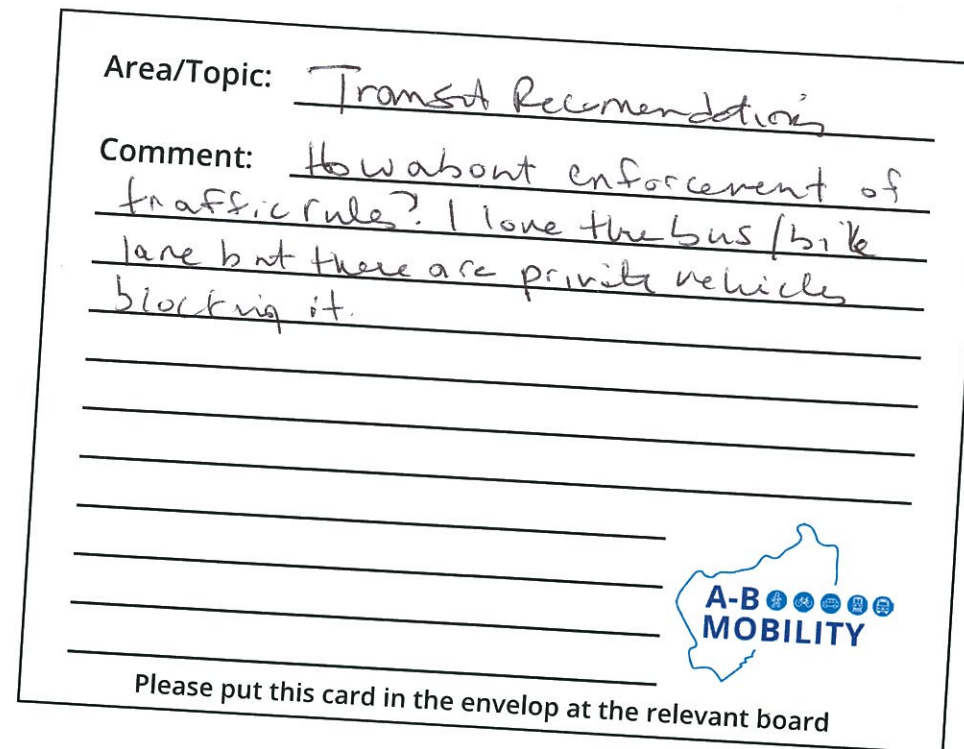 Area/Topic: Transit Recomendations
Comment: How about enforcement of
traffic rules? I love the bus/bike
lane but there are private vehicles
blocking it.
A-B
MOBILITY
Please put this card in the envelop at the relevant board